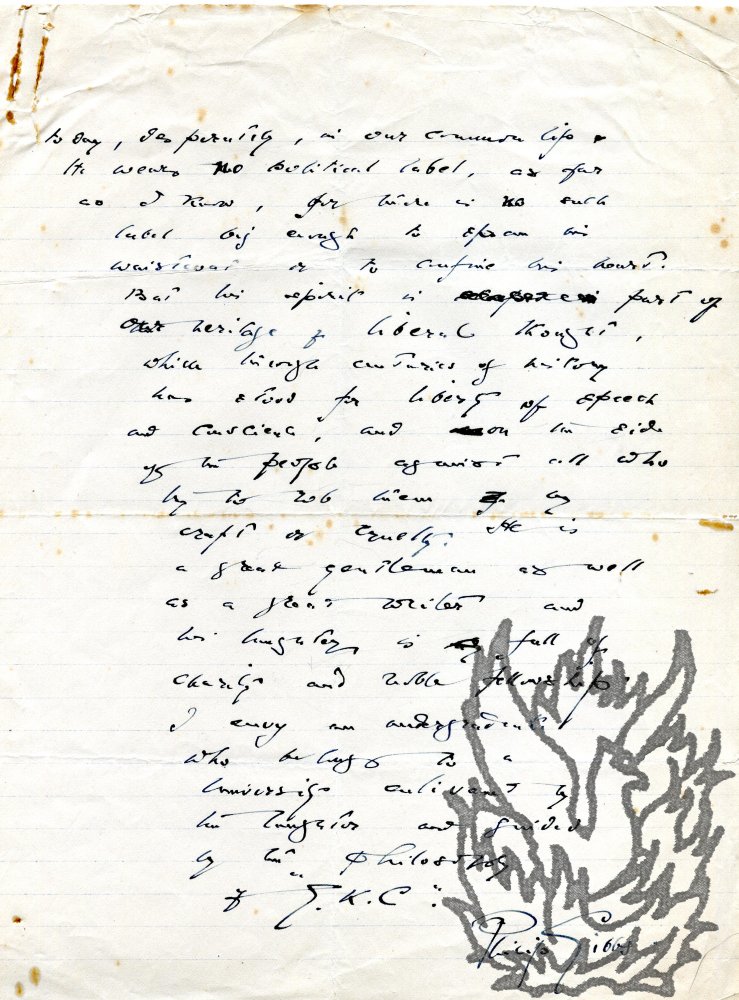 to day, desperately, in our common life.
He wears no political label, as far
as I know, for there is no such
label big enough to span his
waistcoat or to confine his heart.
But his spirit is part of
our heritage of liberal thought,
which through centuries of history
has stood for liberty of speech
and conscience, and on the side
of the people against all who
try to rob them by
craft or cruelty. He is
a great gentleman as well
as a great writer and
his laughter is full of
charity and noble fellowship.
I envy an undergraduate
who belongs to a
University enlivened by
the laughter and guided
by the "philosophy
of G.K.C".
Philip Gibbs